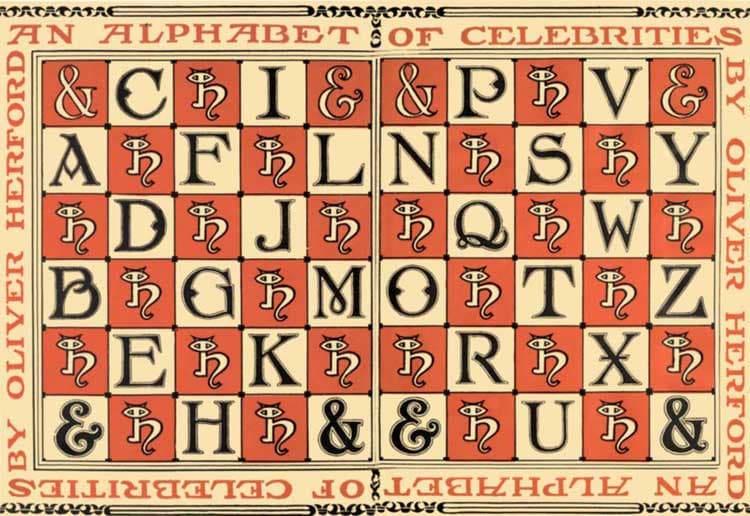 AN ALPHABET OF CELEBRITIES
BY OLIVER HERFORD
& C h I & & P h V &
A h F h L N h S h Y
h D h J h h Q h W h
B h G h M O h T h Z
h E h K h h R h X h
& h H h & & h U h &
BY OLIVER HERFORD
AN ALPHABET OF CELEBRITIES